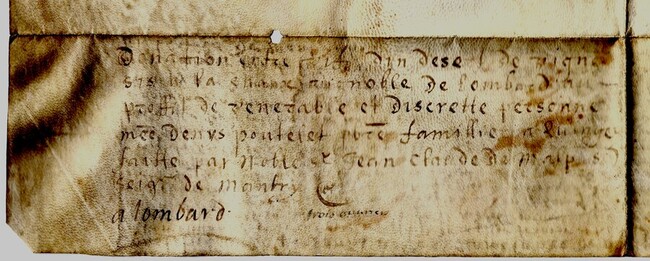 Donation entre vifz d'un dese de vigne
sis a la vignoble De lombard au
proffit de venerable et Discrette personne
mre denys pouteret pbre famillier a Quinge
faitte par Noble sr Jean Claude de Malpas
seigr de Montry
a lombard.